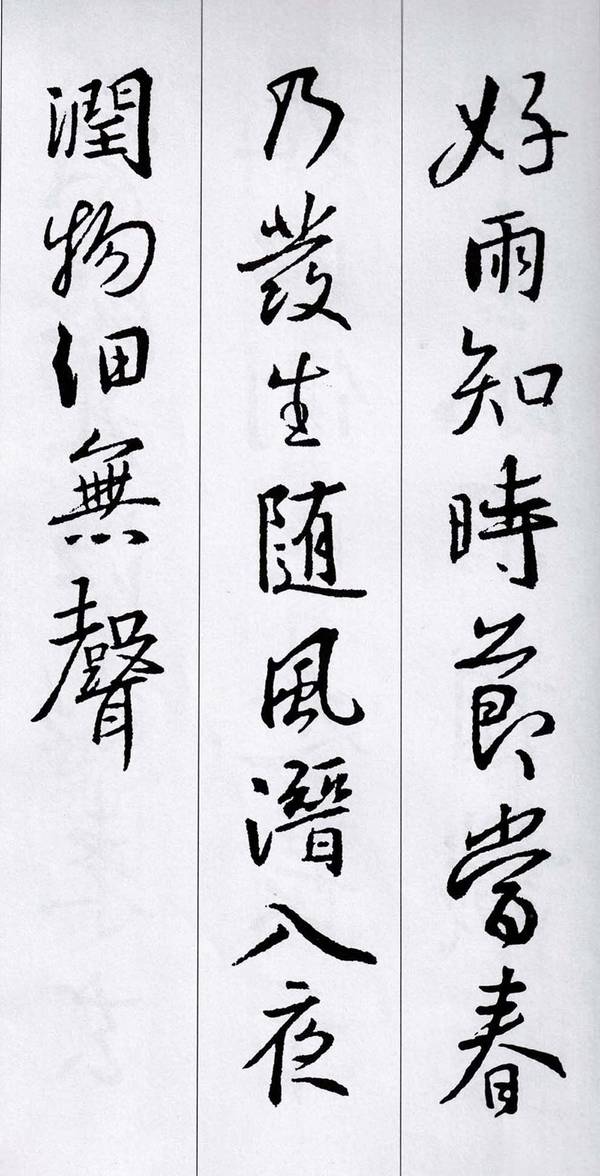 好雨知時節當春
乃發生随風潛入夜
潤物细無聲